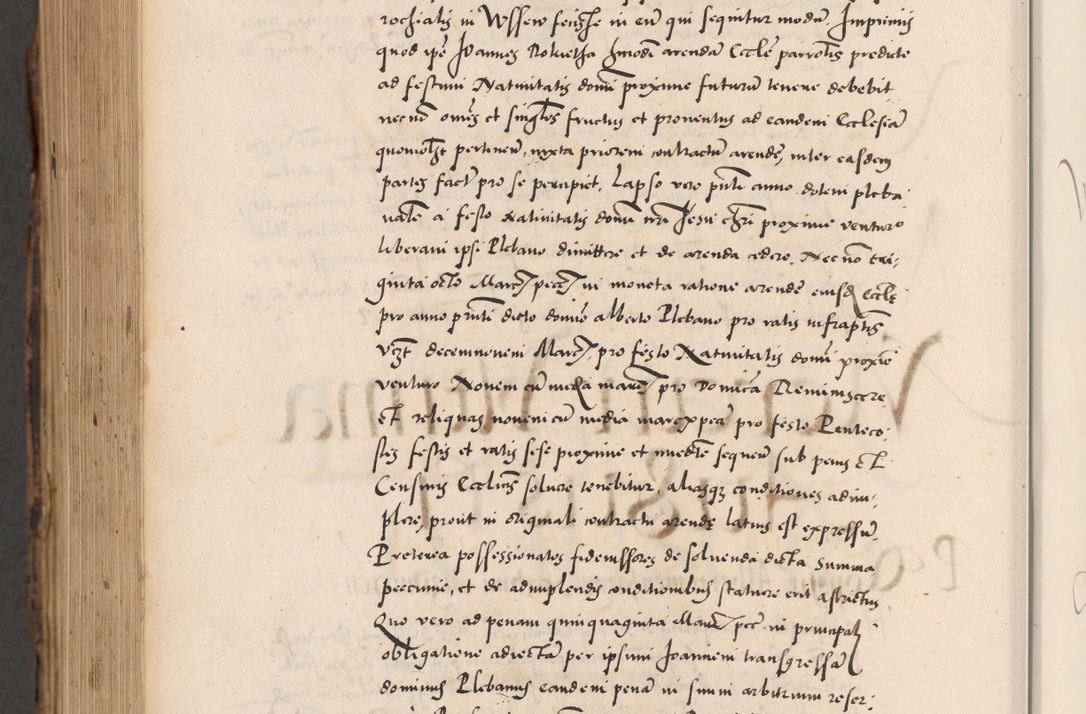 rochialis in Wssew fecisse in eum qui sequitur modum. Imprimis
quod ipse Ioannes Rokietha hmodi arendam Eccle parrolis predicte
ad festum Natiuitatis domini proxime futurum tenere debebit
necnon omnes et singulos fructus et prouentus ad eandem Ecclesiam
quomolibet pertinen, iuxta priorem contractum arende, inter easdem
partes fact pro se percipiet, Lapso vero pnti anno dotem pleba
nalem a festo Natiuitatis domini nri Jesu chri proxime venturo
liberam ipsi Plebano dimittere et de arenda cedere. Nec non tri-
ginta octo Marc pec in moneta ratione arende eiusdem Eccle
pro anno pnti dicto domino alberto Plebano pro ratis infraptis
vzt decemnouem Marc, pro festo Natiuitatis domini proxime
venturo Nouem cum media marc pro Dominica Reminiscere
Et reliquas nouem cum media marc pec pro festo Penteco-
stes festis et ratis sese proxime et immediate sequen sub penis et
Censuris Ecclicis soluere tenebitur, aliasque conditiones adim-
plere, prout in originali contractu arende latius est expressum.
Preterea possessionatos fideiussores de soluenda dicta summa
peccunie, et de adimplendis conditionibus statuere erit astrictus
Quo vero ad penam quinquaginta Marc pec in principali
obligatione adiectam per ipsum Joannem transgressam
dominus Plebanus eandem penam in suum arbitrium reser-